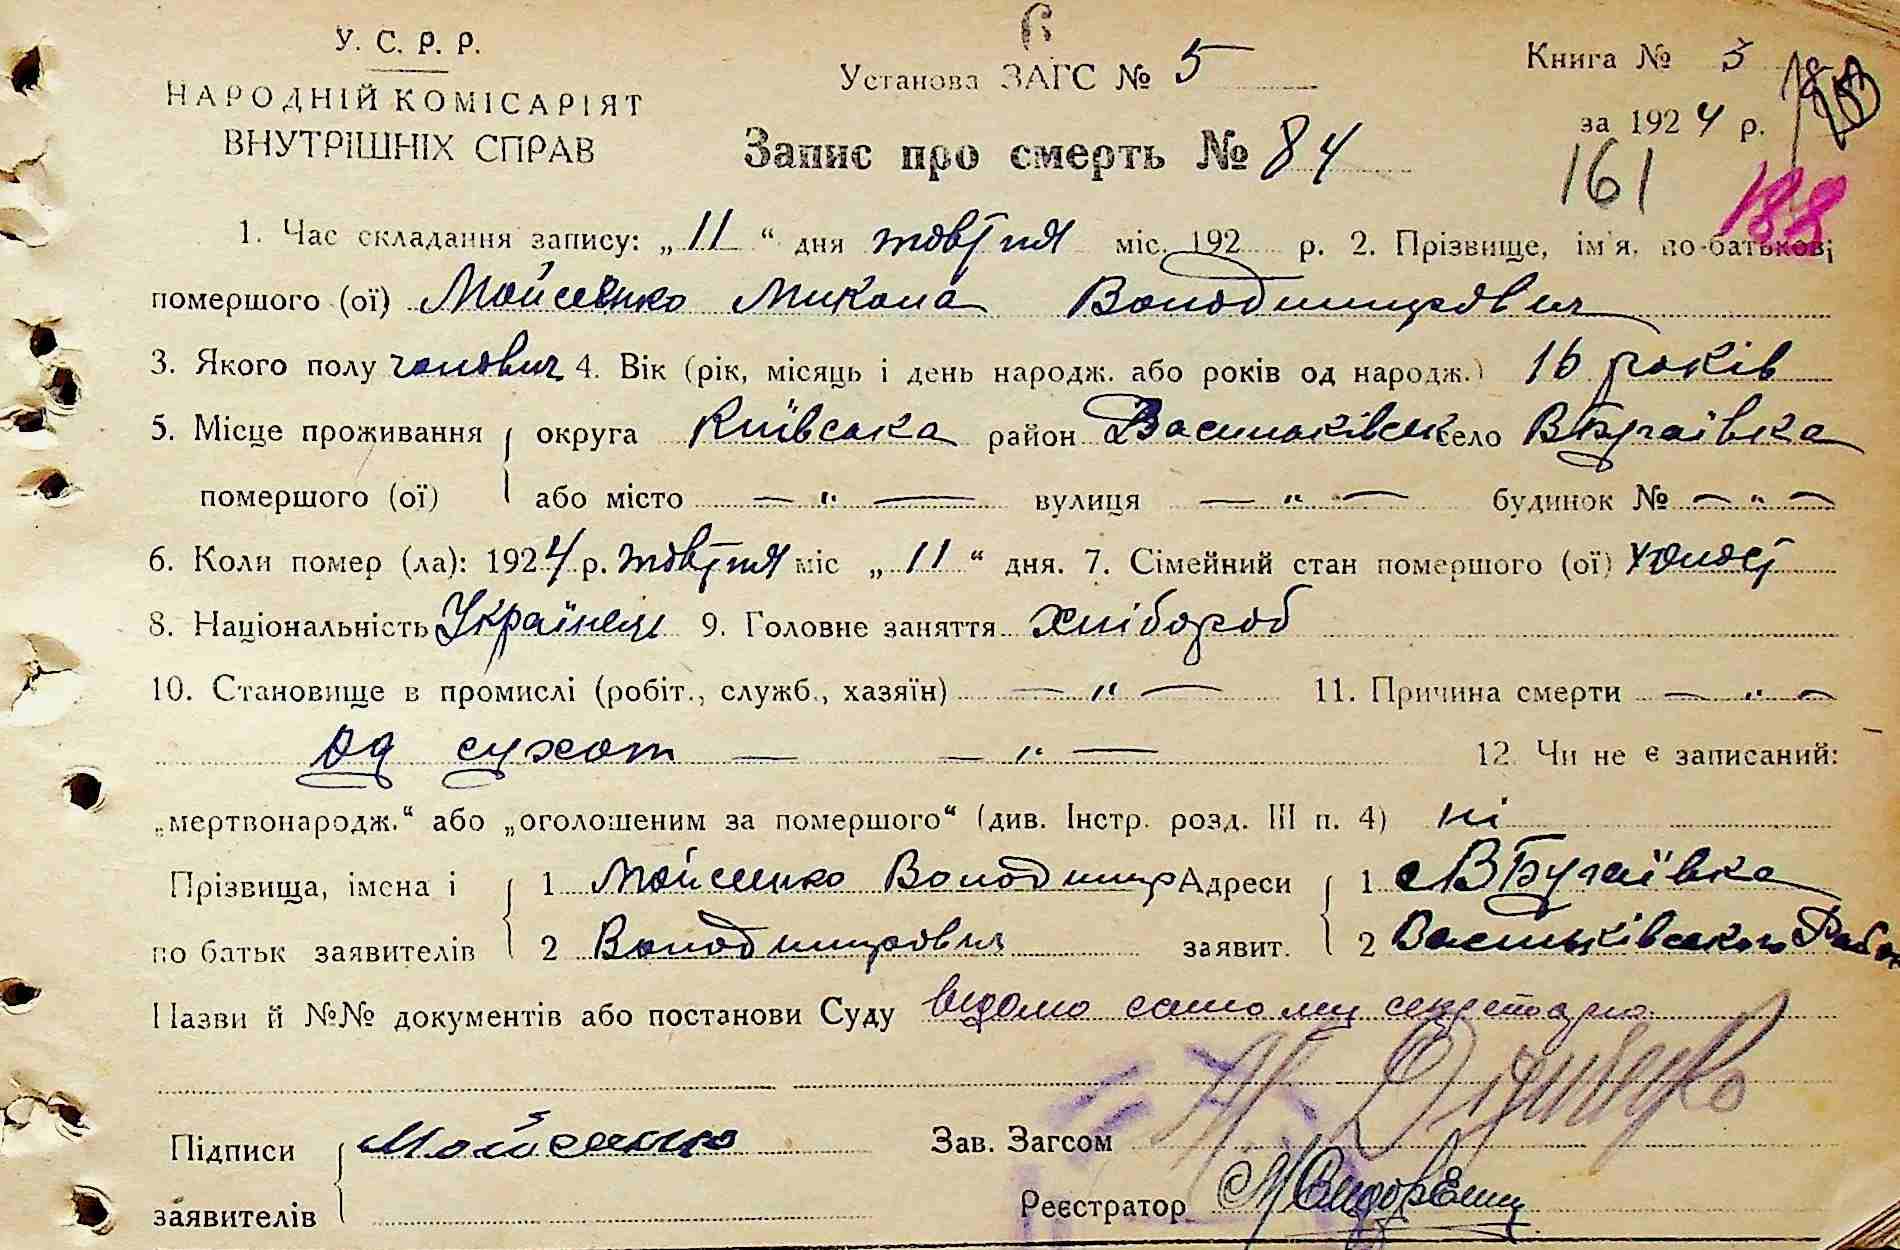 У. С. Р. Р.
НАРОДНІЙ КОМІСАРІЯТ
ВНУТРІШНІХ СПРАВ
Установа ЗАГС № 5
Книга № 3
за 1924 р.
161
188
Запис про смерть № 84
1. Час складання запису: „11“ дня жовтня міс. 192 р. 2. Прізвище, ім'я, по-батькові
помершого (ої) Мойсенко Микола Володимирович
3. Якого полу чоловіч 4. Вік (рік, місяць і день народж. або років од народж.) 16 років
5. Місце проживання округа Київська район Васильківськ село ВБугаївка
помершого (ої) або місто — „ — вулиця — „ — будинок № — „ —
6. Коли помер (ла): 1924 р. жовтня міс „11“ дня. 7. Сімейний стан помершого (ої) холост
8. Національність Українець 9. Головне заняття Хлібороб
10. Становище в промислі (робіт., служб., хазяїн) — „ — 11. Причина смерти — „ —
од сухот — — „ — 12. Чи не є записаний:
„мертвонародж.“ або „оголошеним за помершого“ (див. Інстр. розд. III п. 4) ні
Прізвища, імена і 1 Мойсенко Володимир Адреси 1 с ВБугаївка
по батьк заявителів 2 Володимирович заявит. 2 Васильківського Район
Назви й №№ документів або постанови Суду відомо самому секретарю
Підписи Мойсенко Зав. Загсом
заявителів Реєстратор